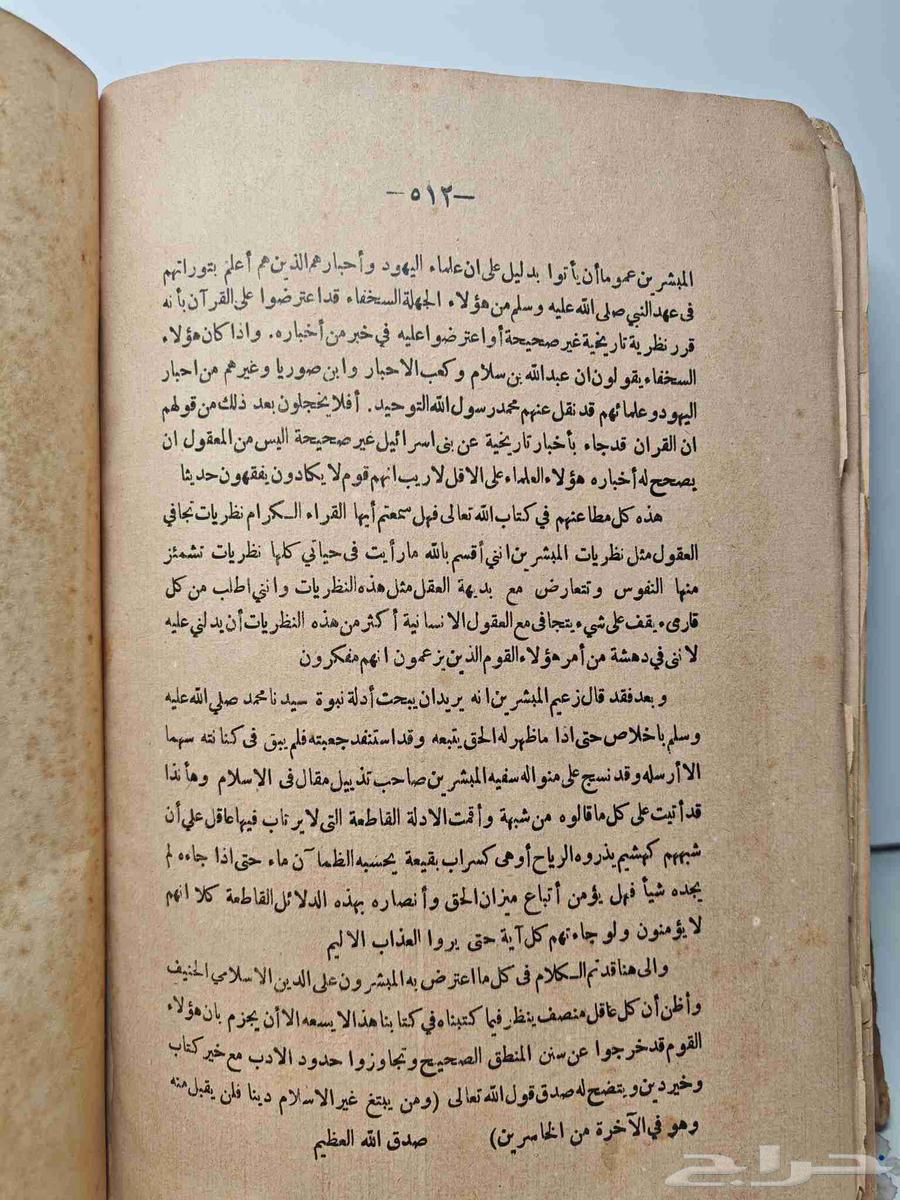 —٥١٢—
المبشرين عموما أن يأتوا بدليل على ان علماء اليهود وأحبارهم الذين هم أعلم بتوراتهم
فى عهد النبي صلى الله عليه وسلم من هؤلاء الجهلة السخفاء قد اعترضوا على القرآن بأنه
قرر نظرية تاريخية غير صحيحة أو اعترضوا عليه في خبر من أخباره. واذا كان هؤلاء
السخفاء يقولون ان عبد الله بن سلام وكعب الاحبار وابن صوريا وغيرهم من احبار
اليهود وعلمائهم قد نقل عنهم محمد رسول الله التوحيد. أفلا يخجلون بعد ذلك من قولهم
ان القران قد جاء بأخبار تاريخية عن بنى اسرائيل غير صحيحة اليس من المعقول ان
يصحح له أخباره هؤلاء العلماء على الاقل لاريب انهم قوم لا يكادون يفقهون حديثا
هذه كل مطاعنهم في كتاب الله تعالى فهل سمعتم أيها القراء الكرام نظريات تجافي
العقول مثل نظريات المبشرين انني أقسم بالله ما رأيت فى حياتي كلها نظريات تشمئز
منها النفوس وتتعارض مع بديهة العقل مثل هذه النظريات وانني اطلب من كل
قارىء يقف على شيء يتجافى مع العقول الانسانية أكثر من هذه النظريات أن يدلني عليه
لاننى في دهشة من أمر هؤلاء القوم الذين يزعمون انهم مفكرون
وبعد فقد قال زعيم المبشرين انه يريد ان يبحث أدلة نبوة سيدنا محمد صلي الله عليه
وسلم باخلاص حتى اذا ما ظهر له الحق يتبعه وقد استنفد جعبته فلم يبق فى كنانته سهما
الا أرسله وقد نسج على منواله سفيه المبشرين صاحب تذييل مقال فى الاسلام وهأنذا
قد أتيت على كل ما قالوه من شبهة وأقمت الادلة القاطعة التى لا يرتاب فيها عاقل علي أن
شبههم كهشيم يذروه الرياح أو هى كسراب بقيعة يحسبه الظمآن ماء حتى اذا جاءه لم
يجده شيأ فهل يؤمن أتباع ميزان الحق وأنصاره بهذه الدلائل القاطعة كلا انهم
لا يؤمنون ولو جاءتهم كل آية حتى يروا العذاب الاليم
والى هنا قد تم الكلام فى كل ما اعترض به المبشرون على الدين الاسلامي الحنيف
وأظن أن كل عاقل منصف ينظر فيما كتبناه في كتابنا هذا لا يسعه الا أن يجزم بان هؤلاء
القوم قد خرجوا عن سنن المنطق الصحيح وتجاوزوا حدود الادب مع خير كتاب
وخير دين ويتضح له صدق قول الله تعالى (ومن يبتغ غير الاسلام دينا فلن يقبل منه
وهو في الآخرة من الخاسرين) صدق الله العظيم
حراج